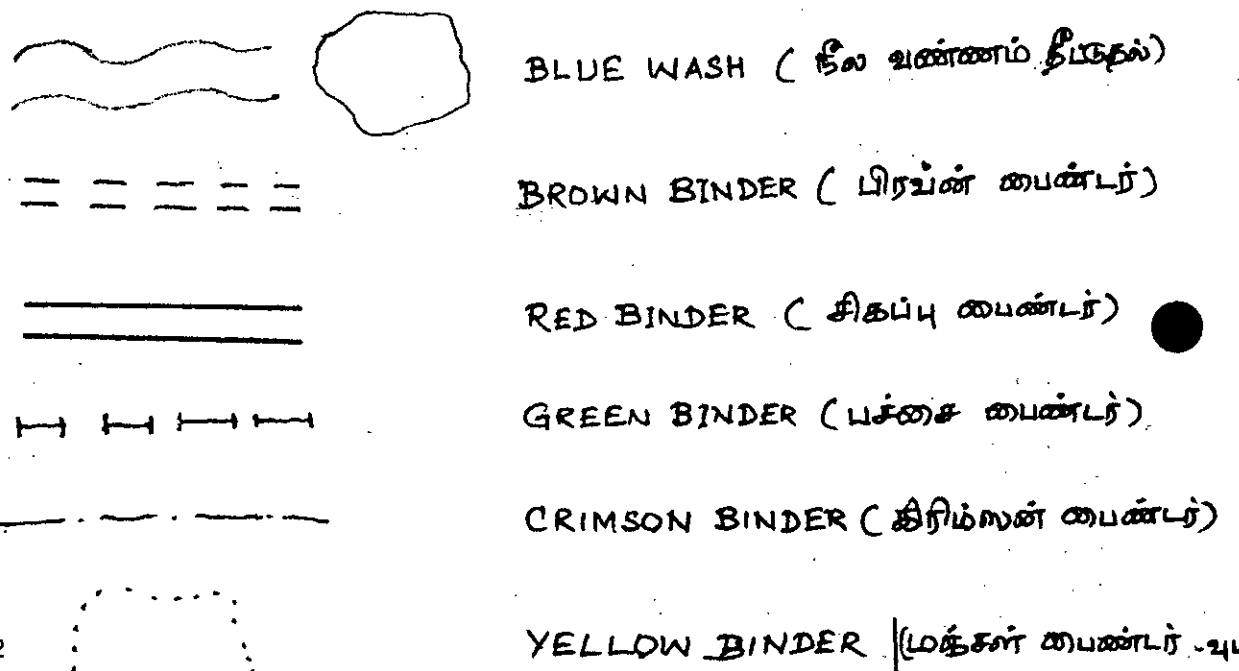 BLUE WASH ( நீல வண்ணம் தீட்டுதல்)
BROWN BINDER ( பிரவ்ன் பைண்டர்)
RED BINDER ( சிகப்பு பைண்டர்)
GREEN BINDER (பச்சை பைண்டர்)
CRIMSON BINDER ( கிரிம்ஸன் பைண்டர்)
YELLOW BINDER (மஞ்சள் பைண்டர்